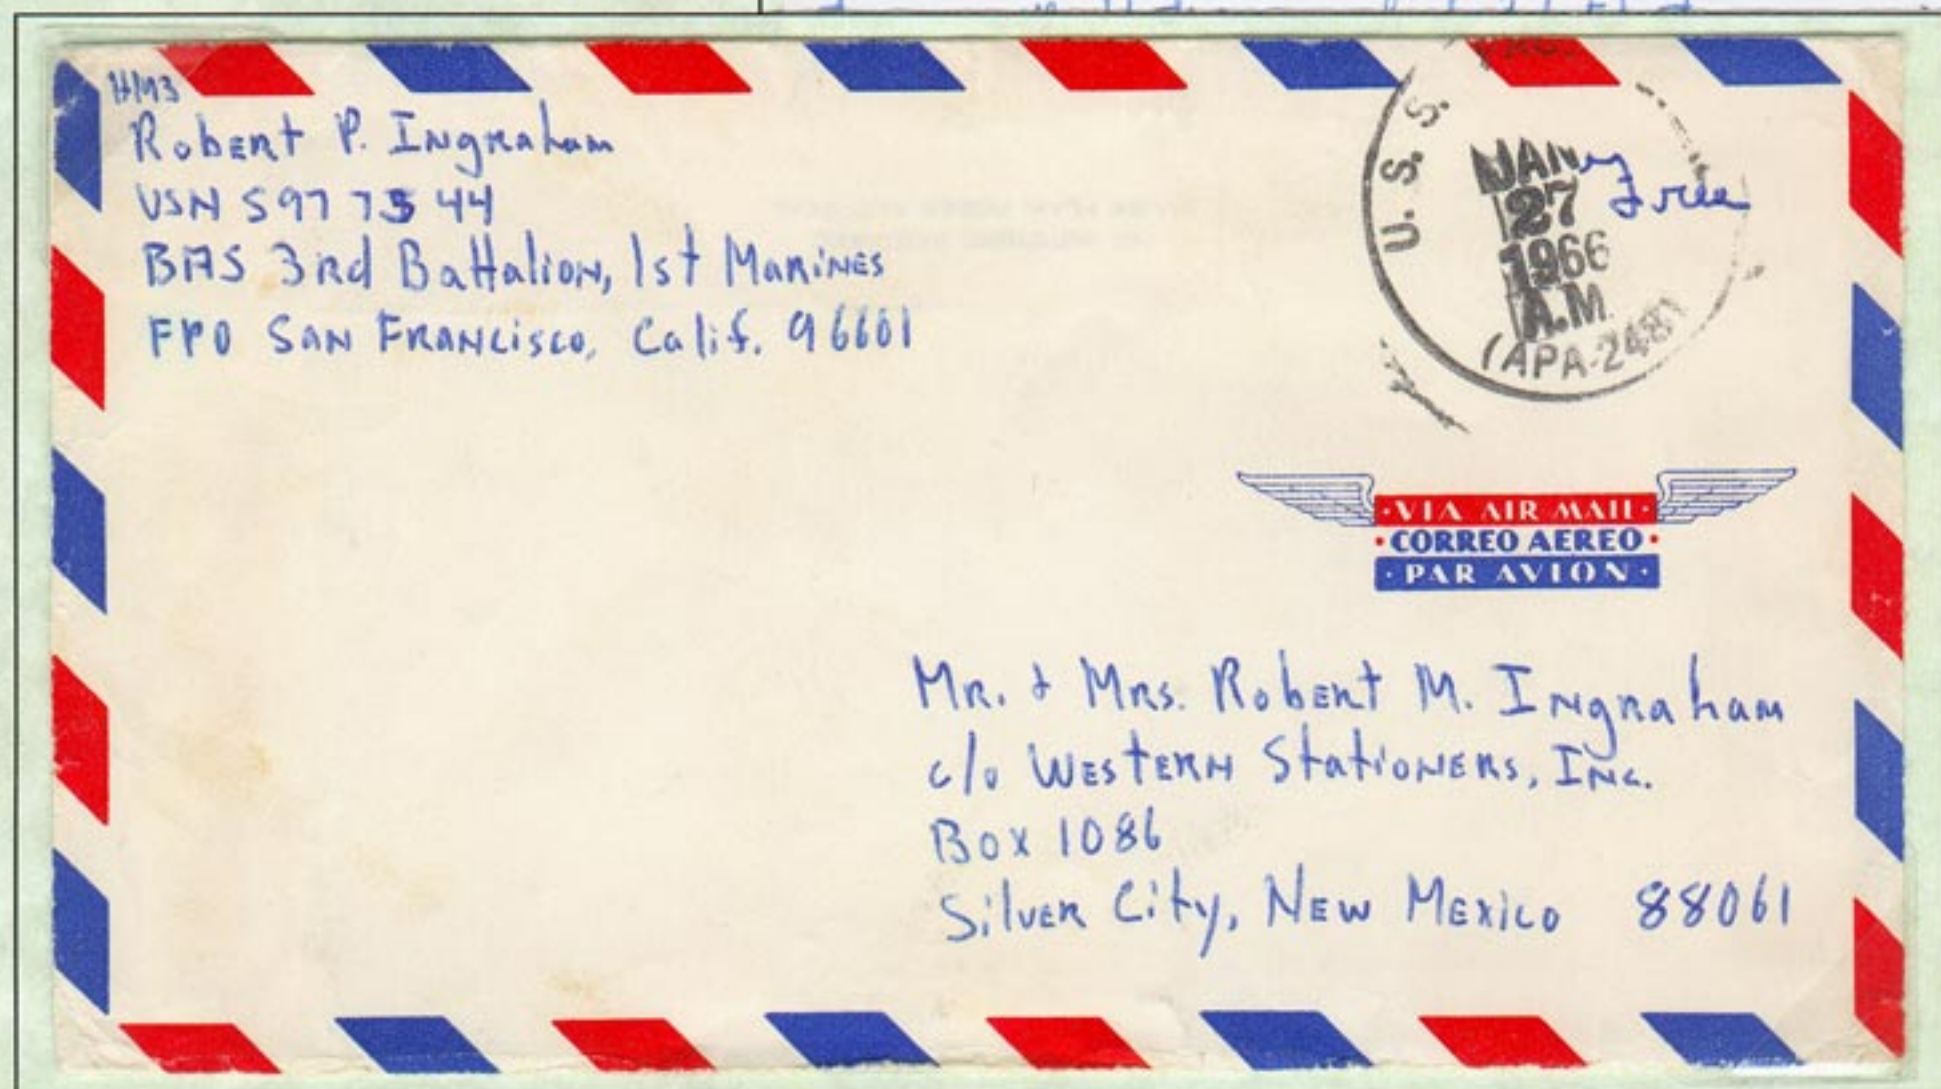 HM3
Robert P. Ingraham
USN 597 73 44
BAS 3rd Battalion, 1st Marines
FPO San Francisco, Calif. 96601
U. S. S.
JAN
27
1966
A.M.
(APA-248)
Free
·VIA AIR MAIL·
·CORREO AEREO·
·PAR AVION·
Mr. & Mrs. Robert M. Ingraham
c/o Western Stationers, Inc.
Box 1086
Silver City, New Mexico 88061